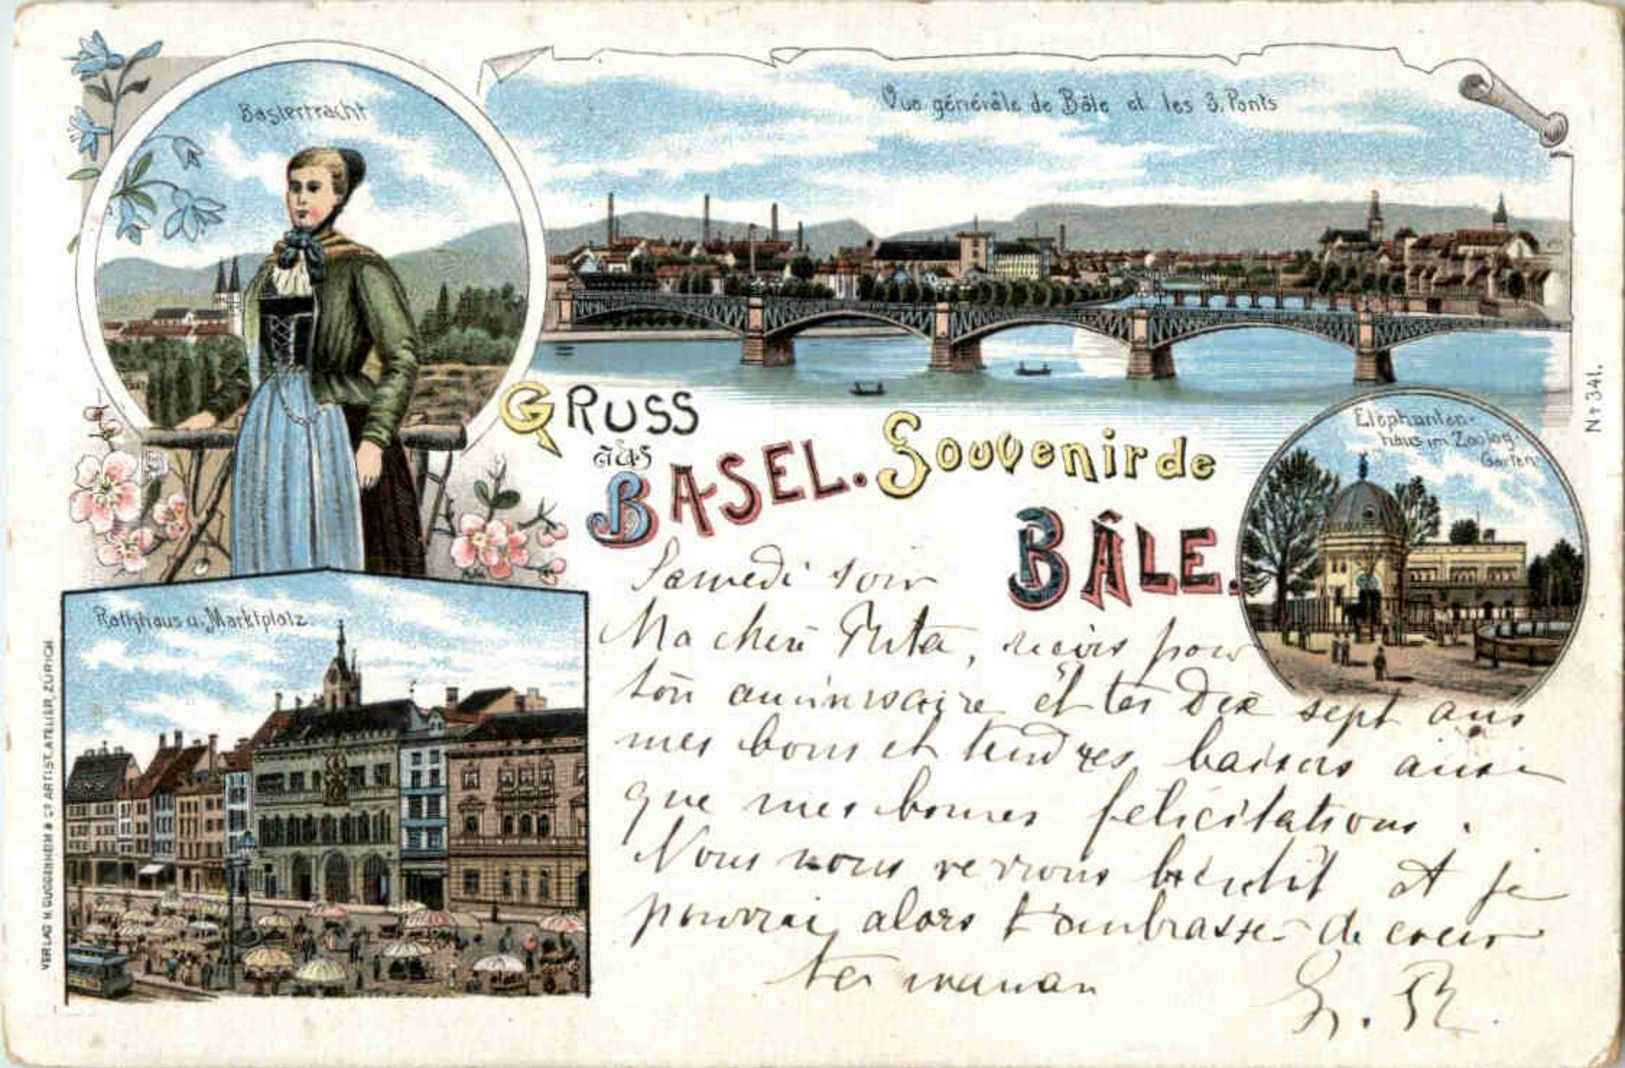 Baslertracht
Vue générale de Bâle et les 3. Ponts
Gruss
aus
Basel. Souvenir de
Bâle.
Elephanten-
haus im Zoolog.
Garten.
Rathhaus u. Marktplatz.
No 341.
VERLAG H. GUGGENHEIM & Co ARTIST. ATELIER, ZÜRICH
Samedi soir
Ma chère, reçois pour
ton anniversaire et tes dix sept ans
mes bons et tendres baisers ainsi
que mes bonnes félicitations.
Nous nous verrons bientôt et je
pourrai alors t'embrasser de coeur